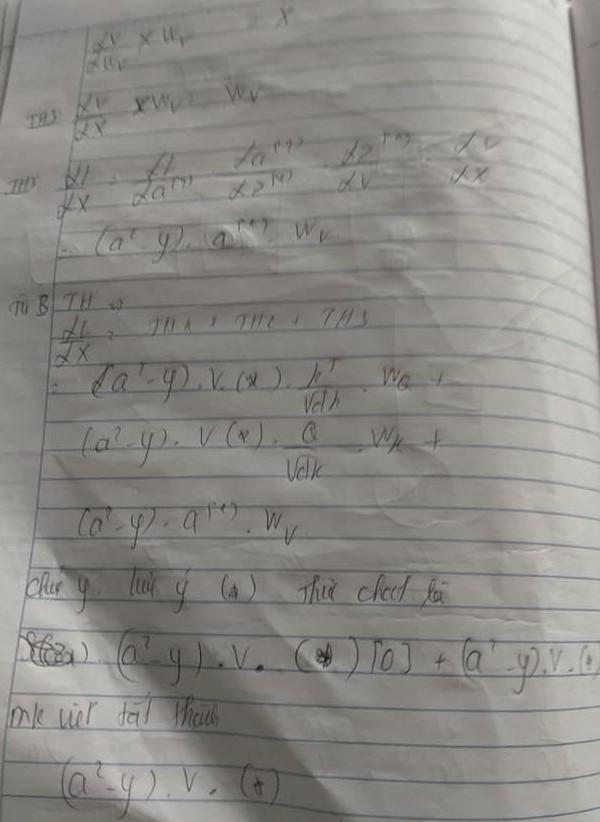 dV/dW_V × W_V = X
TH3 dV/dX × W_V = W_V
TH3 dL/dX = dL/da^(*) · da^(*)/dz^(*) · dz^(*)/dV · dV/dX
= (a² - y) · a^(*) · W_V
Từ 3 TH =>
dL/dX = TH1 + TH2 + TH3
= (a² - y) · V · (*) · k^T/√dk · W_Q +
(a² - y) · V (*) · Q/√dk · W_K +
(a² - y) · a^(*) · W_V
chú ý lưu ý (*) thực chất là
(a² - y) · V · (*) [0] + (a² - y) · V · (*)
mk viết tắt thành
(a² - y) · V · (*)